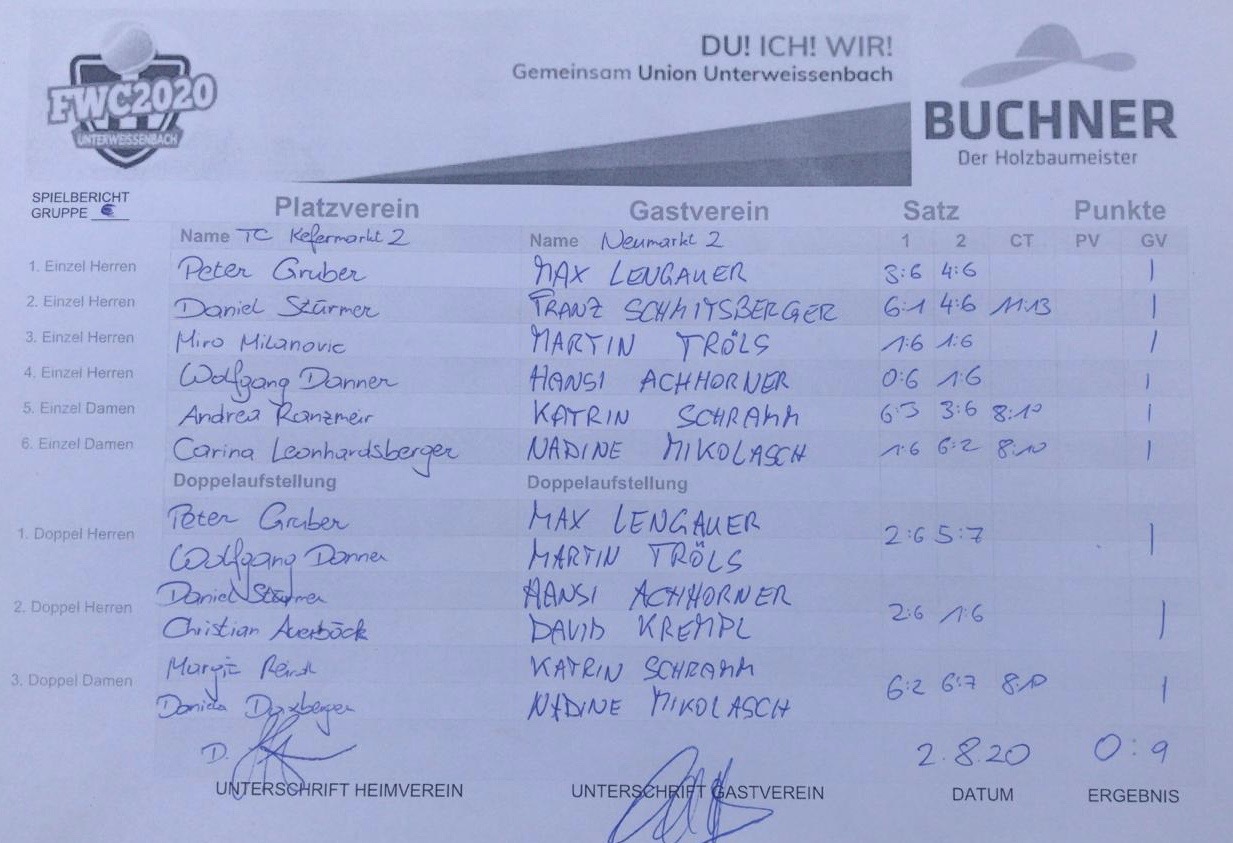 FWC2020
UNTERWEISSENBACH
DU! ICH! WIR!
Gemeinsam Union Unterweissenbach
BUCHNER
Der Holzbaumeister
SPIELBERICHT
GRUPPE
Platzverein Gastverein Satz Punkte
Name TC Kefermarkt 2 Name Neumarkt 2 1 2 CT PV GV
1. Einzel Herren Peter Gruber MAX LENGAUER 3:6 4:6 1
2. Einzel Herren Daniel Stürmer FRANZ SCHMITSBERGER 6:1 4:6 11:13 1
3. Einzel Herren Miro Milanovic MARTIN TRÖLS 1:6 1:6 1
4. Einzel Herren Wolfgang Danner HANSI ACHHORNER 0:6 1:6 1
5. Einzel Damen Andrea Ranzmeir KATRIN SCHRAMM 6:3 3:6 8:10 1
6. Einzel Damen Carina Leonhardsberger NADINE MIKOLASCH 1:6 6:2 8:10 1
Doppelaufstellung Doppelaufstellung
Peter Gruber MAX LENGAUER
1. Doppel Herren 2:6 5:7 1
Wolfgang Danner MARTIN TRÖLS
Daniel Stürmer HANSI ACHHORNER
2. Doppel Herren 2:6 1:6 1
Christian Auerböck DAVID KREMPL
Margit KATRIN SCHRAMM
3. Doppel Damen 6:2 6:7 8:10 1
Daniela NADINE MIKOLASCH
D. 2.8.20 0:9
UNTERSCHRIFT HEIMVEREIN UNTERSCHRIFT GASTVEREIN DATUM ERGEBNIS